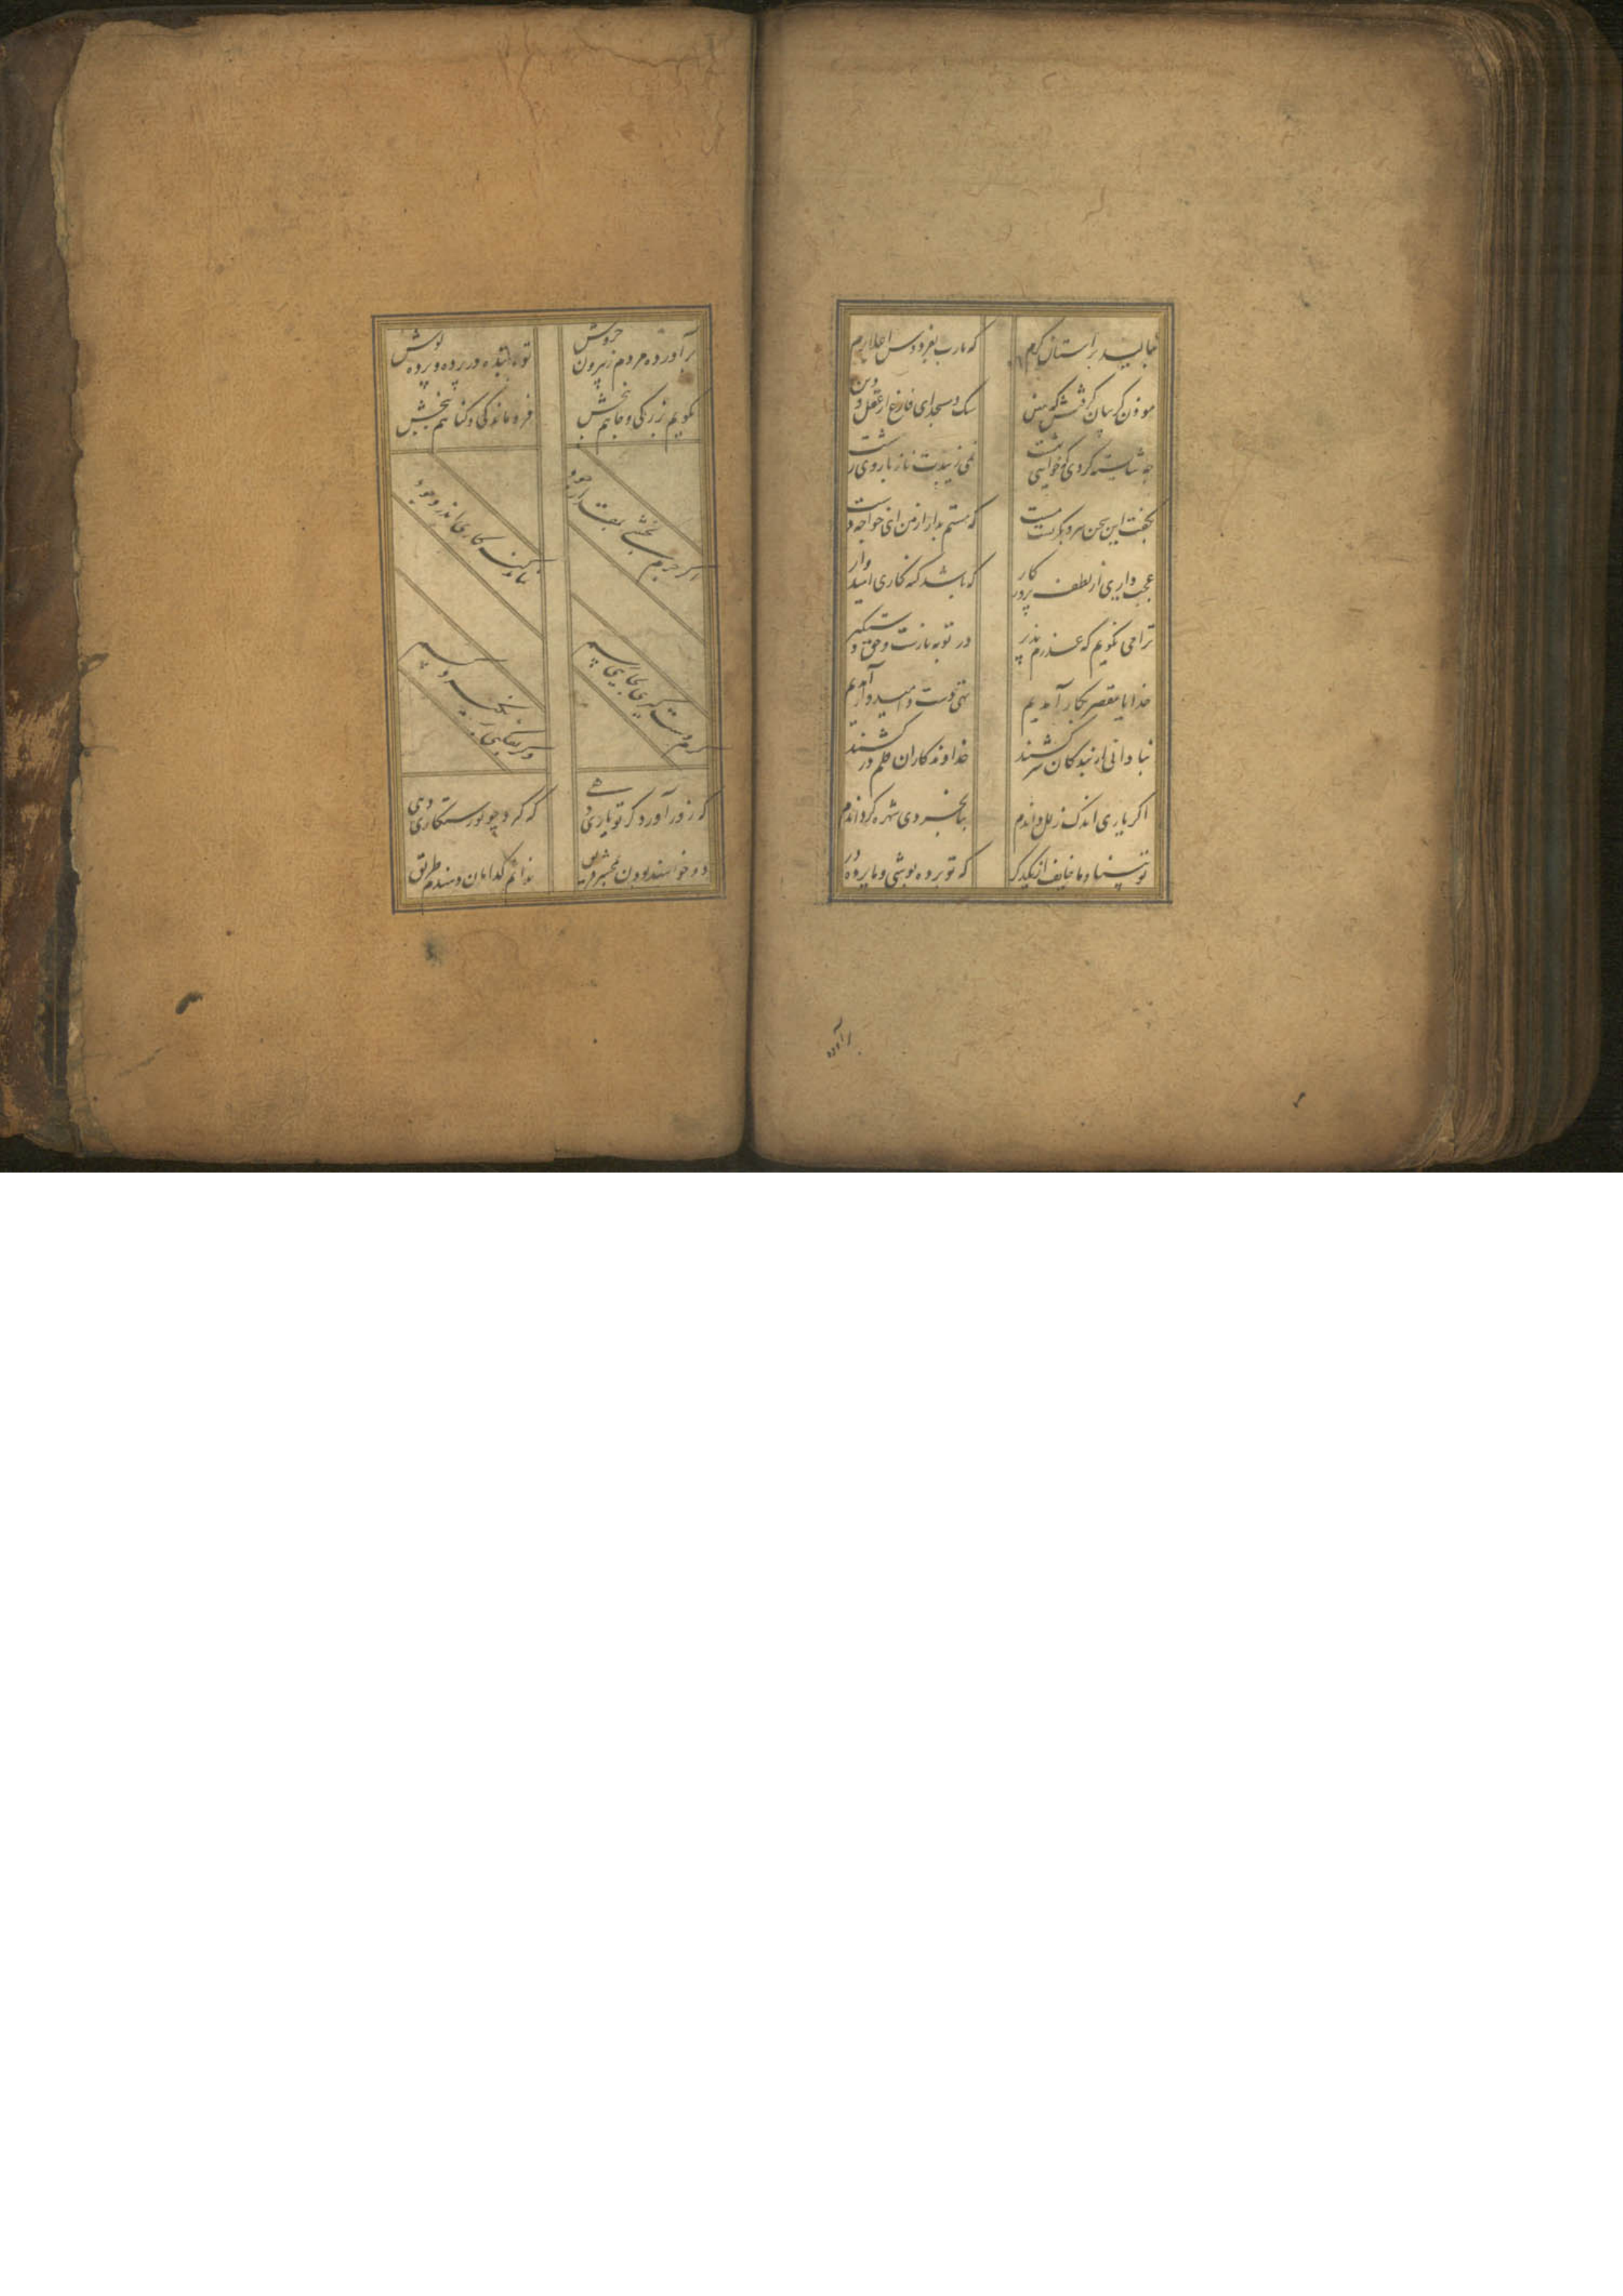 بنالید بر آستان کرم
که یارب بفردوس اعلا برم
موذن کریبان کرفتش که هین
سک و مسجد ای فارغ از عقل و دین
چه شایسته کردی که خواهی بهشت
نمی زیبدت ناز با روی زشت
بگفت این سخن مرد و بکریست مست
که مستم بدار از من ای خواجه دست
عجب داری از لطف پروردکار
که باشد کنه کاری امیدوار
ترا می نکویم که عذرم پذیر
در توبه بازست و حق دستکیر
خدایا مقصر بکار آمدیم
تهی دست و امیدوار آمدیم
بنادانی ار بندکان سرکشند
خداوندکاران قلم درکشند
اکر یاری اندک زلل داندم
بنابخردی شهره کرداندم
تو بینا و ما خایف از یکدکر
که تو پرده پوشی و ما پرده در
برآورده
برآورده مردم ز بیرون خروش
تو با بنده در پرده و پرده پوش
نکویم بزرکی و جاهم ببخش
فروماندکی و کناهم ببخش
اکر جرم بخشی بمقدار جود
نماند کنه کاری اندر وجود
کرم دست کیری بجایی رسم
وکر بفکنی بر نکیرد کسم
که زور آورد کر تو یاری دهی
که کیرد چو تو رستکاری دهی
دو خواهند بودن بمحشر فریق
ندانم کدامان دهندم طریق